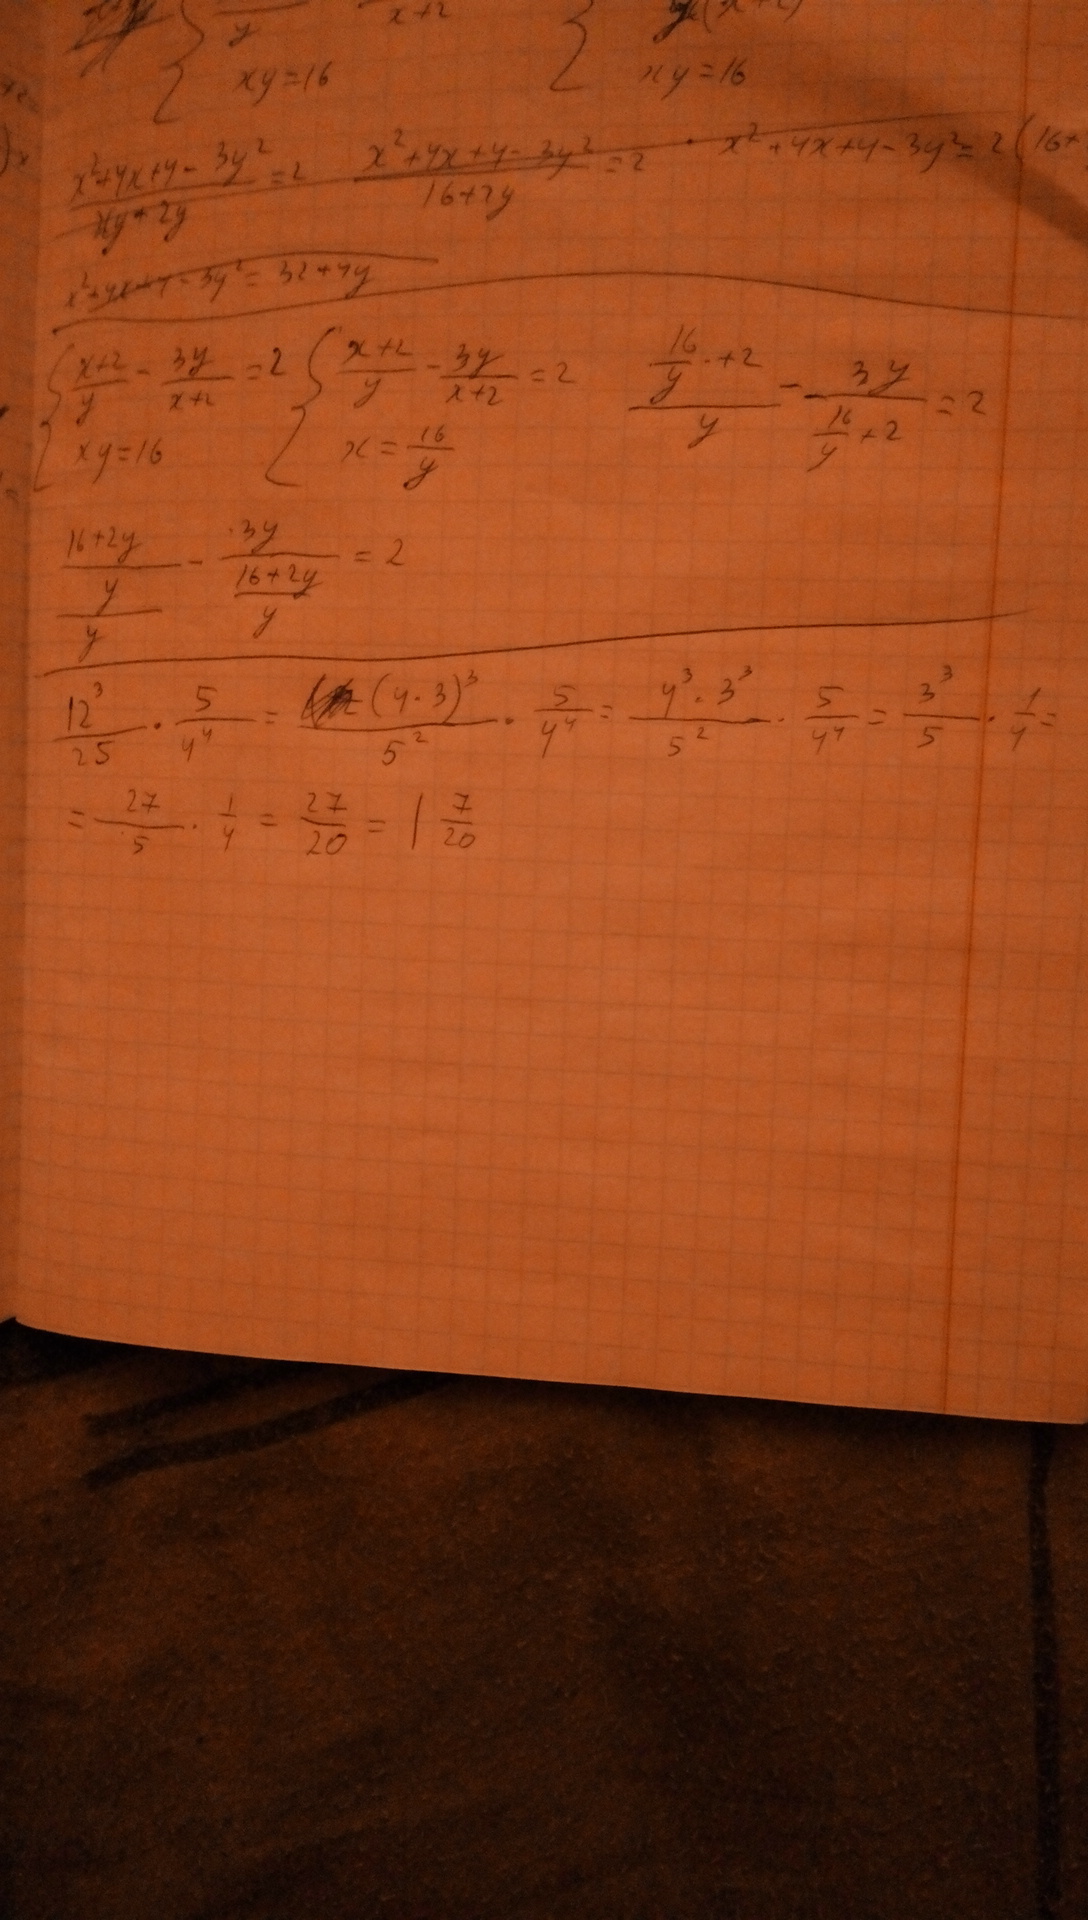 y x+2
xy=16 xy=16
(x²+4x+4-3y²)/(xy+2y)=2 (x²+4x+4-3y²)/(16+2y)=2 x²+4x+4-3y²=2(16+
x²+4x+4-3y²=32+4y
{(x+2)/y - 3y/(x+2)=2 {(x+2)/y - 3y/(x+2)=2 (16/y+2)/y - 3y/(16/y+2)=2
xy=16 x=16/y
((16+2y)/y)/y - 3y/((16+2y)/y)=2
12³/25 · 5/4⁴ = (4·3)³/5² · 5/4⁴ = 4³·3³/5² · 5/4⁴ = 3³/5 · 1/4 =
= 27/5 · 1/4 = 27/20 = 1 7/20